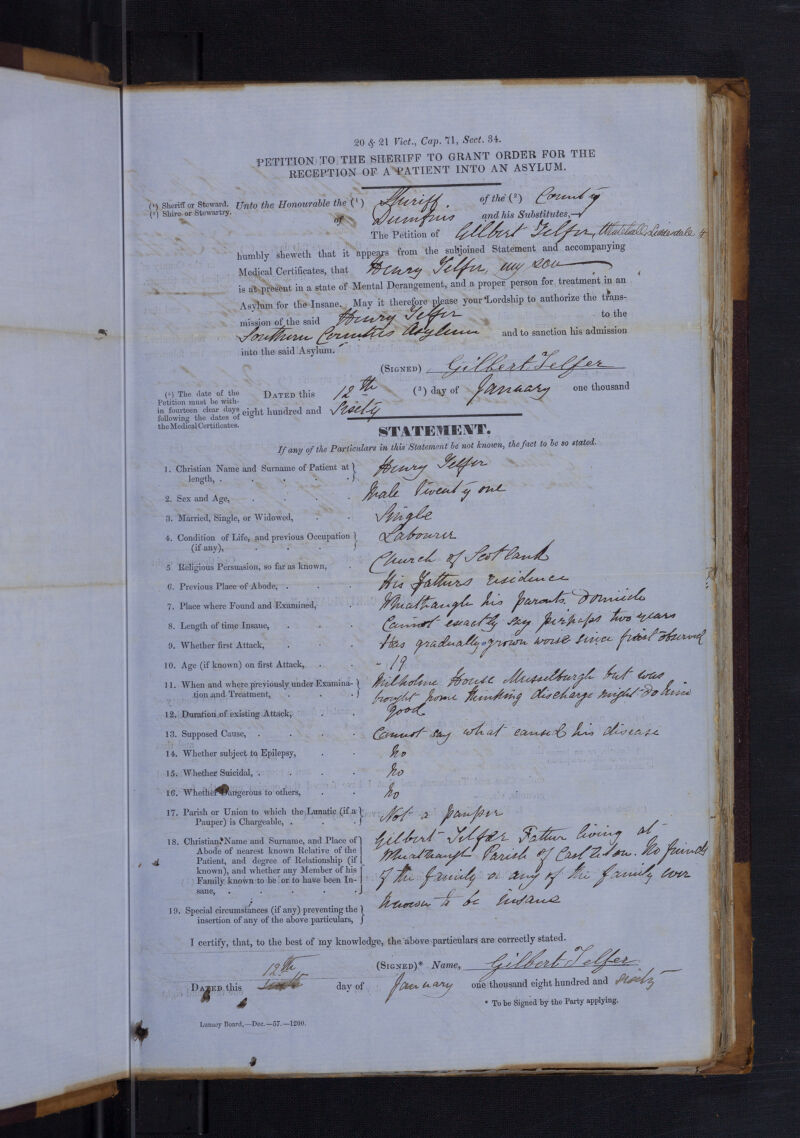 20 & 21 Vict., Cap. 71, Sect. 34.
PETITION TO THE SHERIFF TO GRANT ORDER FOR THE
RECEPTION OF A PATIENT INTO AN ASYLUM.
(¹) Sheriff or Steward.
(²) Shire or Stewartry.
Unto the Honourable the (¹) Sheriff of the (²) County
of Dumfries and his Substitutes,
The Petition of Gilbert Telfer, Liddesdale
humbly sheweth that it appears from the subjoined Statement and accompanying
Medical Certificates, that Henry Telfer, my son
is at present in a state of Mental Derangement, and a proper person for treatment in an
Asylum for the Insane. May it therefore please your Lordship to authorize the trans-
mission of the said Henry Telfer to the
Southern Counties Asylum and to sanction his admission
into the said Asylum.
(SIGNED) Gilbert Telfer
(³) The date of the
Petition must be with-
in fourteen clear days
following the dates of
the Medical Certificates.
DATED this 12th (³) day of January one thousand
eight hundred and Sixty
STATEMENT.
If any of the Particulars in this Statement be not known, the fact to be so stated.
1. Christian Name and Surname of Patient at
length, . Henry Telfer
2. Sex and Age, Male Twenty one
3. Married, Single, or Widowed, Single
4. Condition of Life, and previous Occupation
(if any), Labourer
5 Religious Persuasion, so far as known, Church of Scotland
6. Previous Place of Abode, . His Fathers residence
7. Place where Found and Examined, his parents domicile
8. Length of time Insane, Cannot exactly say perhaps two years
9. Whether first Attack, Has gradually grown worse since first observed
10. Age (if known) on first Attack, 19
11. When and where previously under Examina-
tion and Treatment, House Musselburgh but was
brought home thinking discharge might do him
good
12. Duration of existing Attack,
13. Supposed Cause, . Cannot say what caused his disease
14. Whether subject to Epilepsy, No
15. Whether Suicidal, . No
16. Whether Dangerous to others, No
17. Parish or Union to which the Lunatic (if a
Pauper) is Chargeable, . Not a pauper
18. Christian Name and Surname, and Place of
Abode of nearest known Relative of the
Patient, and degree of Relationship (if
known), and whether any Member of his
Family known to be or to have been In-
sane, . Gilbert Telfer Father living at
Parish of Castleton. No friends
of the family or any of the family ever
known to be insane
19. Special circumstances (if any) preventing the
insertion of any of the above particulars,
I certify, that, to the best of my knowledge, the above particulars are correctly stated.
(SIGNED)* Name, Gilbert Telfer
12th
DATED this day of January one thousand eight hundred and Sixty
* To be Signed by the Party applying.
Lunacy Board,—Dec.—57.—1200.